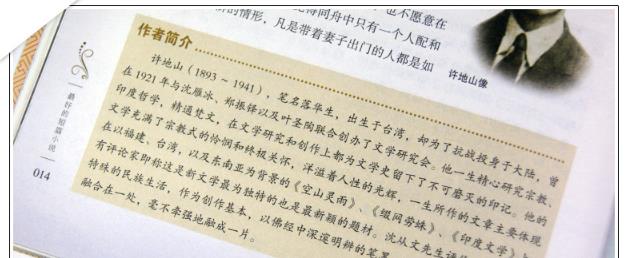 也不愿意在
同舟中只有一个人配和
的情形，凡是带着妻子出门的人都是如
许地山像
作者简介
许地山（1893～1941），笔名落华生，出生于台湾，却为了抗战投身于大陆，曾
在1921年与沈雁冰、郑振铎以及叶圣陶联合创办了文学研究会。他一生精心研究宗教、
印度哲学，精通梵文，在文学研究和创作上都为文学史留下了不可磨灭的印记。他的
文学充满了宗教式的怜悯和终极关怀，洋溢着人性的光辉，一生所作的文章主要体现
在以福建、台湾，以及东南亚为背景的《空山灵雨》、《缀网劳蛛》、《印度文学》
有评论家即称这是新文学最为独特的也是最新颖的题材。沈从文先生
特殊的民族生活，作为创作基本，以佛经中深邃明辨的笔
融合在一处，毫不牵强地融成一片。
最好的短篇小说
014